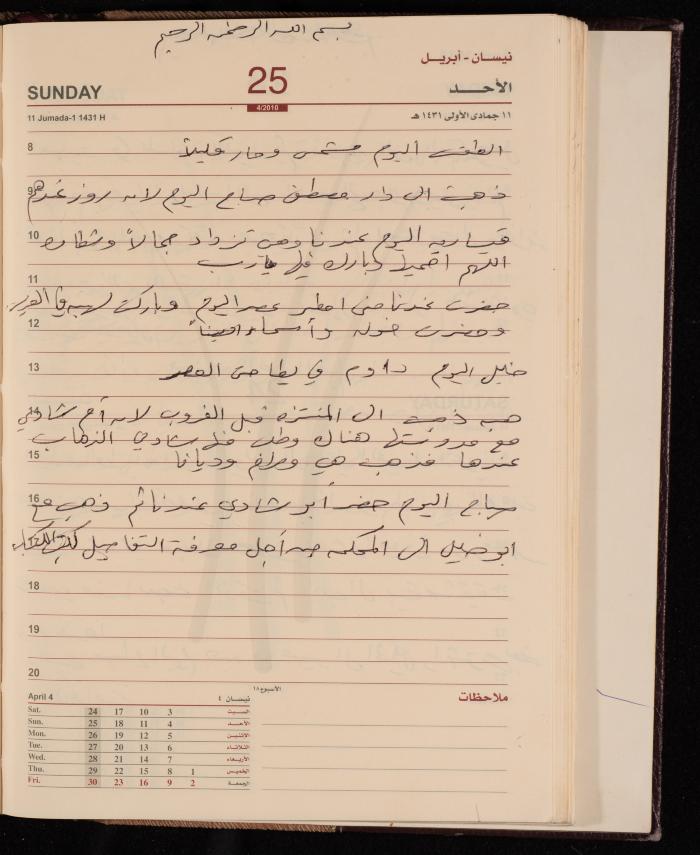 بسم الله الرحمن الرحيم
نيسان - أبريل
SUNDAY 25 الأحد
4/2010
11 Jumada-1 1431 H ١١ جمادى الأولى ١٤٣١ هـ
8 الطقس اليوم مشمس وحار قليلاً
9 ذهبت الى دار مصطفى صباح اليوم لانه روز عندهم
10 اليوم عندنا وهي تزداد جمالاً وشطاره
اللهم وبارك فيها يارب
11 حضرت عندنا منى عصر اليوم وباركت
12 وحضرت خوله وأسماء أيضاً
13 خليل اليوم داوم في العصر
14 ذهبت الى المنتزه قبل الغروب لانه شادي
مع هناك وطلب منها شادي الذهاب
15 عندها فذهبت هي ومرام وديانا
16 صباح اليوم حضر أبو شادي عندنا ثم ذهب مع
ابو خليل الى المحكمه من أجل معرفة التفاصيل
18
19
20
April 4 نيسان ٤
الأسبوع ١٨
ملاحظات
Sat. 24 17 10 3 السبت
Sun. 25 18 11 4 الأحد
Mon. 26 19 12 5 الاثنين
Tue. 27 20 13 6 الثلاثاء
Wed. 28 21 14 7 الأربعاء
Thu. 29 22 15 8 1 الخميس
Fri. 30 23 16 9 2 الجمعة